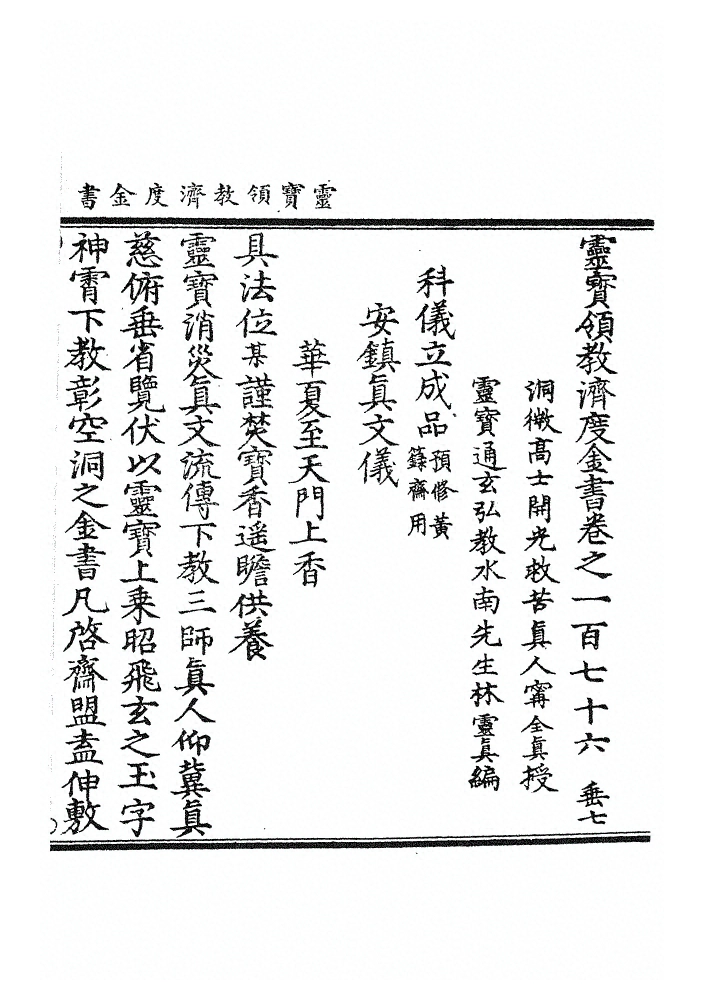 靈寶領教濟度金書
靈寶領教濟度金書卷之一百七十六　垂七
洞微高士開光救苦眞人甯全眞授
靈寶通玄弘教水南先生林靈眞編
科儀立成品預修黃籙齋用
安鎮眞文儀
華夏至天門上香
具法位某謹焚寶香遥瞻供養
靈寶消災眞文流傳下教三師眞人仰冀眞
慈俯垂省覽伏以靈寶上乗昭飛玄之玉字
神霄下教彰空洞之金書凡啓齋盟盍伸敷